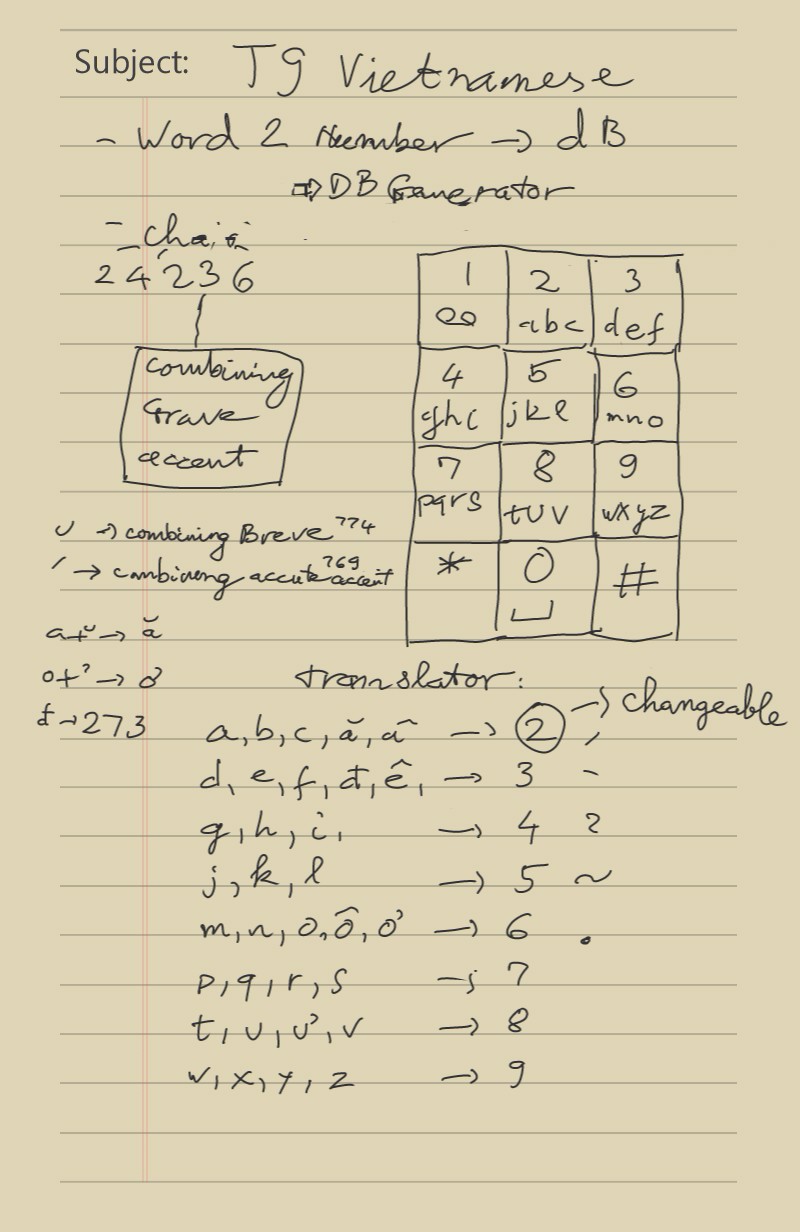 Subject: T9 Vietnamese
- Word 2 Number → dB
⇒ DB Generator
24236
combining
grave
accent
1 2 3
abc def
4 5 6
ghc jkl mno
7 8 9
pqrs tuv wxyz
* 0 #
⌣ → combining Breve 774
´ → combining accute accent 769
a + ˘ → ă
o + ̉ → ỏ
đ → 273
translator:
→ changeable
a, b, c, ă, â → 2 ´
d, e, f, đ, ê, → 3 -
g, h, i, → 4 ?
j, k, l → 5 ~
m, n, o, ô, ơ → 6 .
p, q, r, s → 7
t, u, ư, v → 8
w, x, y, z → 9